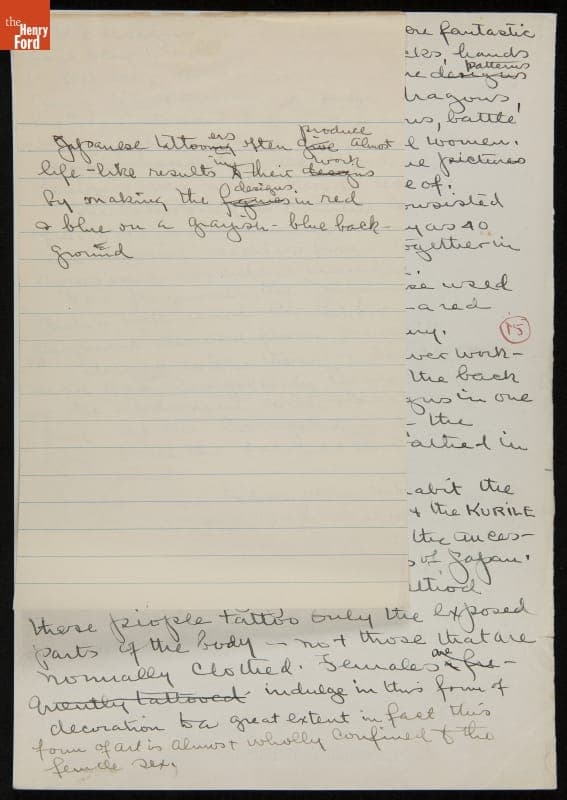 the
Henry
Ford
Japanese tattooing ers often give produce almost
life-like results in to their designs work
by making the figures designs in red
& blue on a grayish-blue back-
ground
ore fantastic
cks, hands
re designs patterns
dragons,
ns, battle
l women.
e pictures
e of.
onsisted
y as 40
ogether in
se used
a red
ny.
15
ver work-
the back
gns in one
- the
abit the
& the KURILE
the ances-
s of Japan.
these people tattoo only the exposed
parts of the body - not those that are
normally clothed. Females are fre-
quently tattooed indulge in this form of
decoration to a great extent in fact this
form of art is almost wholly confined to the
female sex.